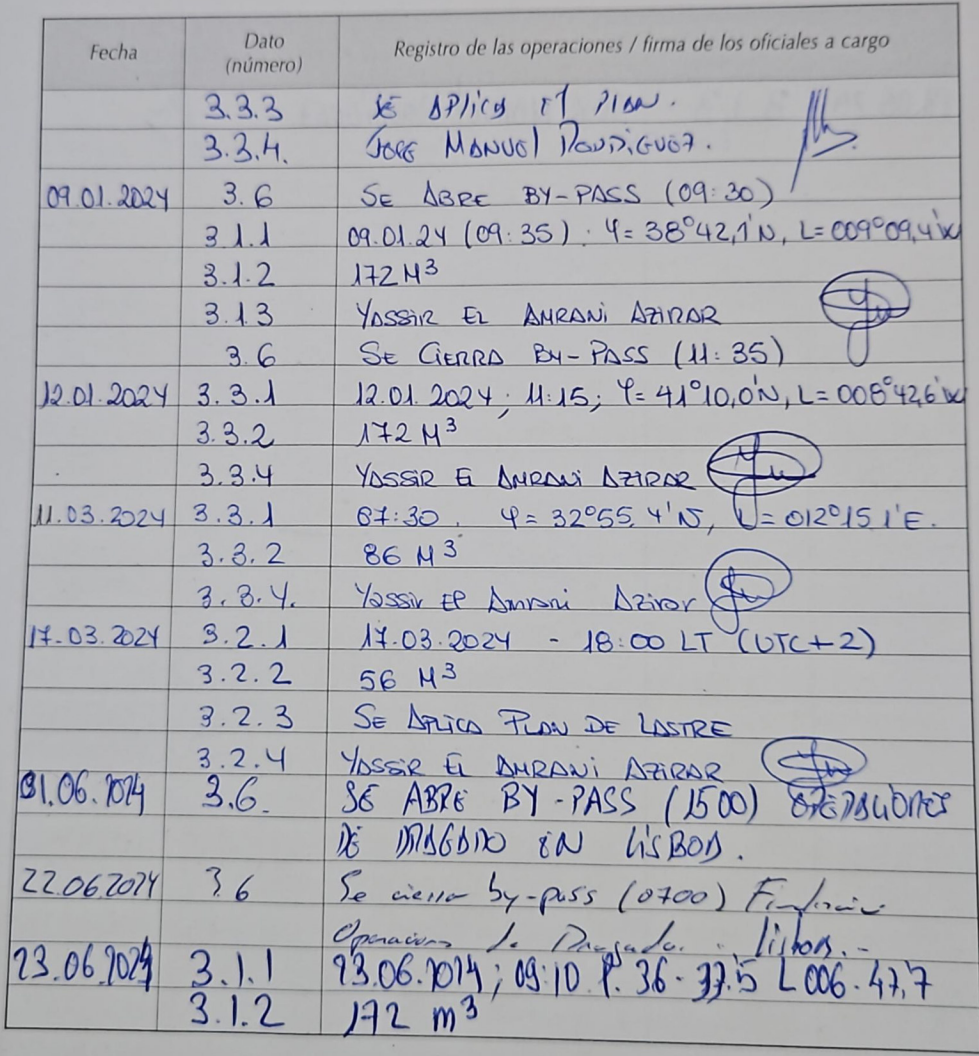 Fecha Dato (número) Registro de las operaciones / firma de los oficiales a cargo
3.3.3 SE APLICA El PLAN.
3.3.4. JOSE MANUEL RODRIGUEZ.
09.01.2024 3.6 SE ABRE BY-PASS (09:30)
3.1.1 09.01.24 (09:35). φ= 38°42,1'N, L= 009°09,4'W
3.1.2 172 M³
3.1.3 YASSIR EL AMRANI AZIRAR
3.6 SE CIERRA BY-PASS (11:35)
12.01.2024 3.3.1 12.01.2024; 11:15; φ= 41°10,0'N, L= 008°42,6'W
3.3.2 172 M³
3.3.4 YASSIR EL AMRANI AZIRAR
11.03.2024 3.3.1 07:30. φ= 32°55,4'N, L= 012°15,1'E.
3.3.2 86 M³
3.3.4. Yassir El Amrani Azirar
17.03.2024 3.2.1 17.03.2024 - 18:00 LT (UTC+2)
3.2.2 56 M³
3.2.3 SE APLICA PLAN DE LASTRE
3.2.4 YASSIR EL AMRANI AZIRAR
01.06.2024 3.6. SE ABRE BY-PASS (1500) OPERACIONES
DE DRAGADO EN LISBOA.
22.06.2024 3.6 Se cierra by-pass (0700)
Operaciones de Dragado. Lisboa.-
23.06.2024 3.1.1 23.06.2024; 09:10 φ. 36-37.5 L 006-47,7
3.1.2 172 m³